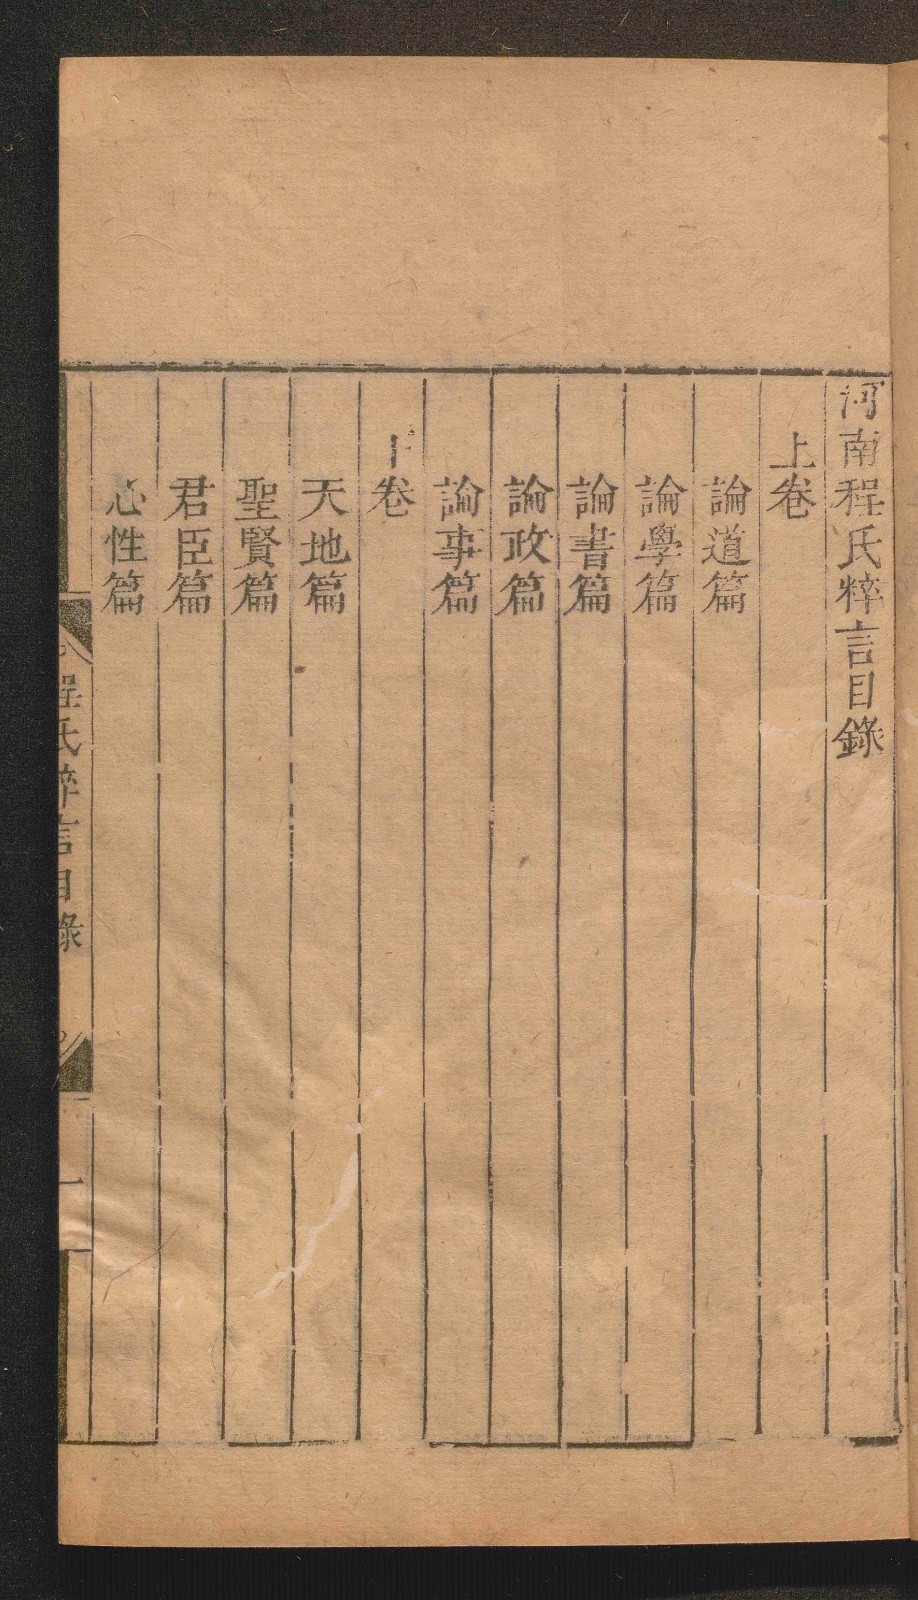 河南程氏粹言目錄
上卷
論道篇
論學篇
論書篇
論政篇
論事篇
下卷
天地篇
聖賢篇
君臣篇
心性篇
程氏粹言目錄
一